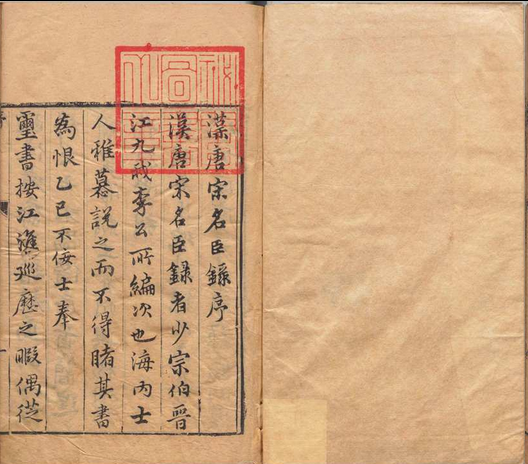 漢唐宋名臣錄序
漢唐宋名臣録者少宗伯晉
江九我李公所編次也海内士
人雅慕說之而不得睹其書
為恨乙巳不佞士奉
璽書按江淮巡歷之暇偶從